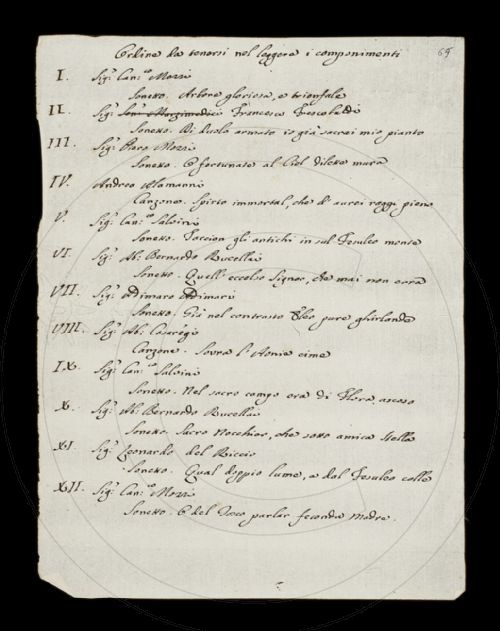 Ordine da tenersi nel leggere i componimenti
69
I. Sig.r Can.co Mozzi
Sonetto. Arbore gloriosa, e trionfale
II. Sig.r Francesco Frescobaldi
Sonetto. Di duolo armato io già sacrai mio pianto
III. Sig.r Piero Mozzi
Sonetto. O fortunate al Ciel dilette mura
IV. Andrea Alamanni
Canzone. Spirto immortal, che d' aurei raggi pieno
V. Sig.r Can.co Salvini
Sonetto. Taccion gli antichi in sul Fesuleo monte
VI. Sig.r Ab. Bernardo Rucellai
Sonetto. Quell' eccelso Signor, che mai non erra
VII. Sig.r Adimaro Adimari
Sonetto. Già nel contrasto pure ghirlande
VIII. Sig.r Ab. Casaregi
Canzone. Sovra l' Aonie cime
IX. Sig.r Can.co Salvini
Sonetto. Nel sacro campo era di Flora ascoso
X. Sig.r Ab. Bernardo Rucellai
Sonetto. Sacro Nocchier, che sotto amica stella
XI. Sig.r Leonardo del Riccio
Sonetto. Qual doppio lume, e dal Fesuleo colle
XII. Sig.r Can.co Mozzi
Sonetto. O del Tosco parlar feconda Madre.